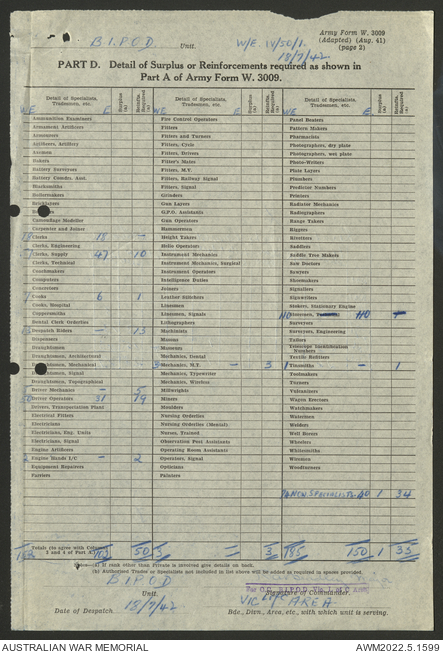 B.I.P.O.D Unit.
W/E 18/7/42
Army Form W. 3009
(Adapted) (Aug. 41)
(page 2)
PART D. Detail of Surplus or Reinforcements required as shown in
Part A of Army Form W. 3009.
Detail of Specialists, Tradesmen, etc. Surplus (a) Reinfts. Required (a)
W/E E
Ammunition Examiners
Armament Artificers
Armourers
Artificers, Artillery
Bakers
Battery Surveyors
Blacksmiths
Boilermakers
Bricklayers
Camouflage Modeller
Carpenter and Joiner
Clerks 18 —
Clerks, Engineering
Clerks, Supply 47 10
Clerks, Technical
Coachmakers
Computers
Concretors
Cooks 6 1
Cooks, Hospital
Coppersmiths
Dental Clerk Orderlies
Despatch Riders — 13
Dispensers
Draughtsmen
Draughtsmen, Architectural
Draughtsmen, Mechanical
Draughtsmen, Signal
Draughtsmen, Topographical
Driver Mechanics — 5
Driver Operators 31 19
Drivers, Transportation Plant
Electrical Fitters
Electricians
Electricians, Eng. Units
Electricians, Signal
Engine Artificers
Engine Hands I/C — 2
Equipment Repairers
Farriers
Totals (to agree with Cols. 3 and 4 of Part A) 102 50
Detail of Specialists, Tradesmen, etc. Surplus (a) Reinfts. Required (a)
W/E E
Fire Control Operators
Fitters
Fitters and Turners
Fitters, Cycle
Fitters, Drivers
Fitter's Mates
Fitters, M.V.
Fitters, Railway Signal
Fitters, Signal
Grinders
Gun Layers
G.P.O. Assistants
Gun Operators
Hammermen
Height Takers
Helio Operators
Instrument Mechanics
Instrument Mechanics, Surgical
Instrument Operators
Intelligence Duties
Joiners
Leather Stitchers
Linesmen
Linesmen, Signals
Lithographers
Machinists
Masons
Masseurs
Mechanics, Dental
3 Mechanics, M.T. — 3
Mechanics, Typewriter
Mechanics, Wireless
Millwrights
Miners
Moulders
Nursing Orderlies
Nursing Orderlies (Mental)
Nurses, Trained
Observation Post Assistants
Operating Room Assistants
Operators, Signal
Opticians
Painters
3 — 3
Detail of Specialists, Tradesmen, etc. Surplus (a) Reinfts. Required (a)
W/E E
Panel Beaters
Pattern Makers
Pharmacists
Photographers, dry plate
Photographers, wet plate
Photo-Writers
Plate Layers
Plumbers
Predictor Numbers
Printers
Radiator Mechanics
Radiographers
Range Takers
Riggers
Rivetters
Saddlers
Saddle Tree Makers
Saw Doctors
Sawyers
Shoemakers
Signallers
Signwriters
Stokers, Stationary Engine
110 110
Surveyors
Surveyors, Engineering
Tailors
Telescope Identification Numbers
Textile Refitters
1 Tinsmiths — 1
Toolmakers
Turners
Vulcanisers
Wagon Erectors
Watchmakers
Watermen
Welders
Well Borers
Wheelers
Whitesmiths
Wiremen
Woodturners
74 NON. SPECIALISTS. 40 1 34
185 150 1 35
Note—(a) If rank other than Private is involved give details on back.
(b) Authorised Trades or Specialists not included in list above will be added in spaces provided.
B.I.P.O.D
Unit.
Signature of Commander.
18/7/42
Date of Despatch.
VIC L of C AREA
Bde., Divn., Area, etc., with which unit is serving.
AUSTRALIAN WAR MEMORIAL AWM2022.5.1599